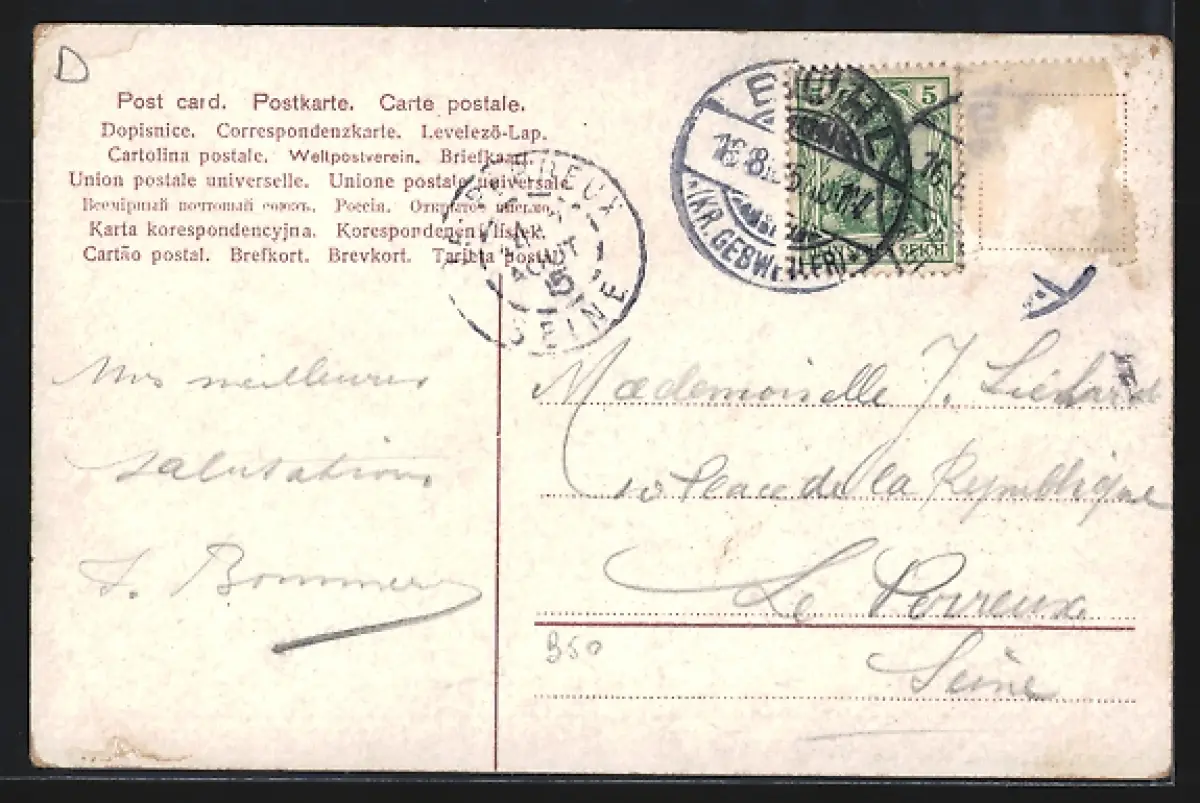 D
Post card. Postkarte. Carte postale.
Dopisnice. Correspondenzkarte. Levelező-Lap.
Cartolina postale. Weltpostverein. Briefkaart.
Union postale universelle. Unione postale universale.
Всемірный почтовый союзъ. Россія. Открытое письмо.
Karta korespondencyjna. Korespondenční lístek.
Cartão postal. Brefkort. Brevkort. Tarjeta postal.
AOUT
SEINE
16.8.
(KR. GEBWEILER)
5
REICH
Mes meilleures
salutations
Mademoiselle J. Liéhard
10 Place de la République
Le Perreux
Seine
350